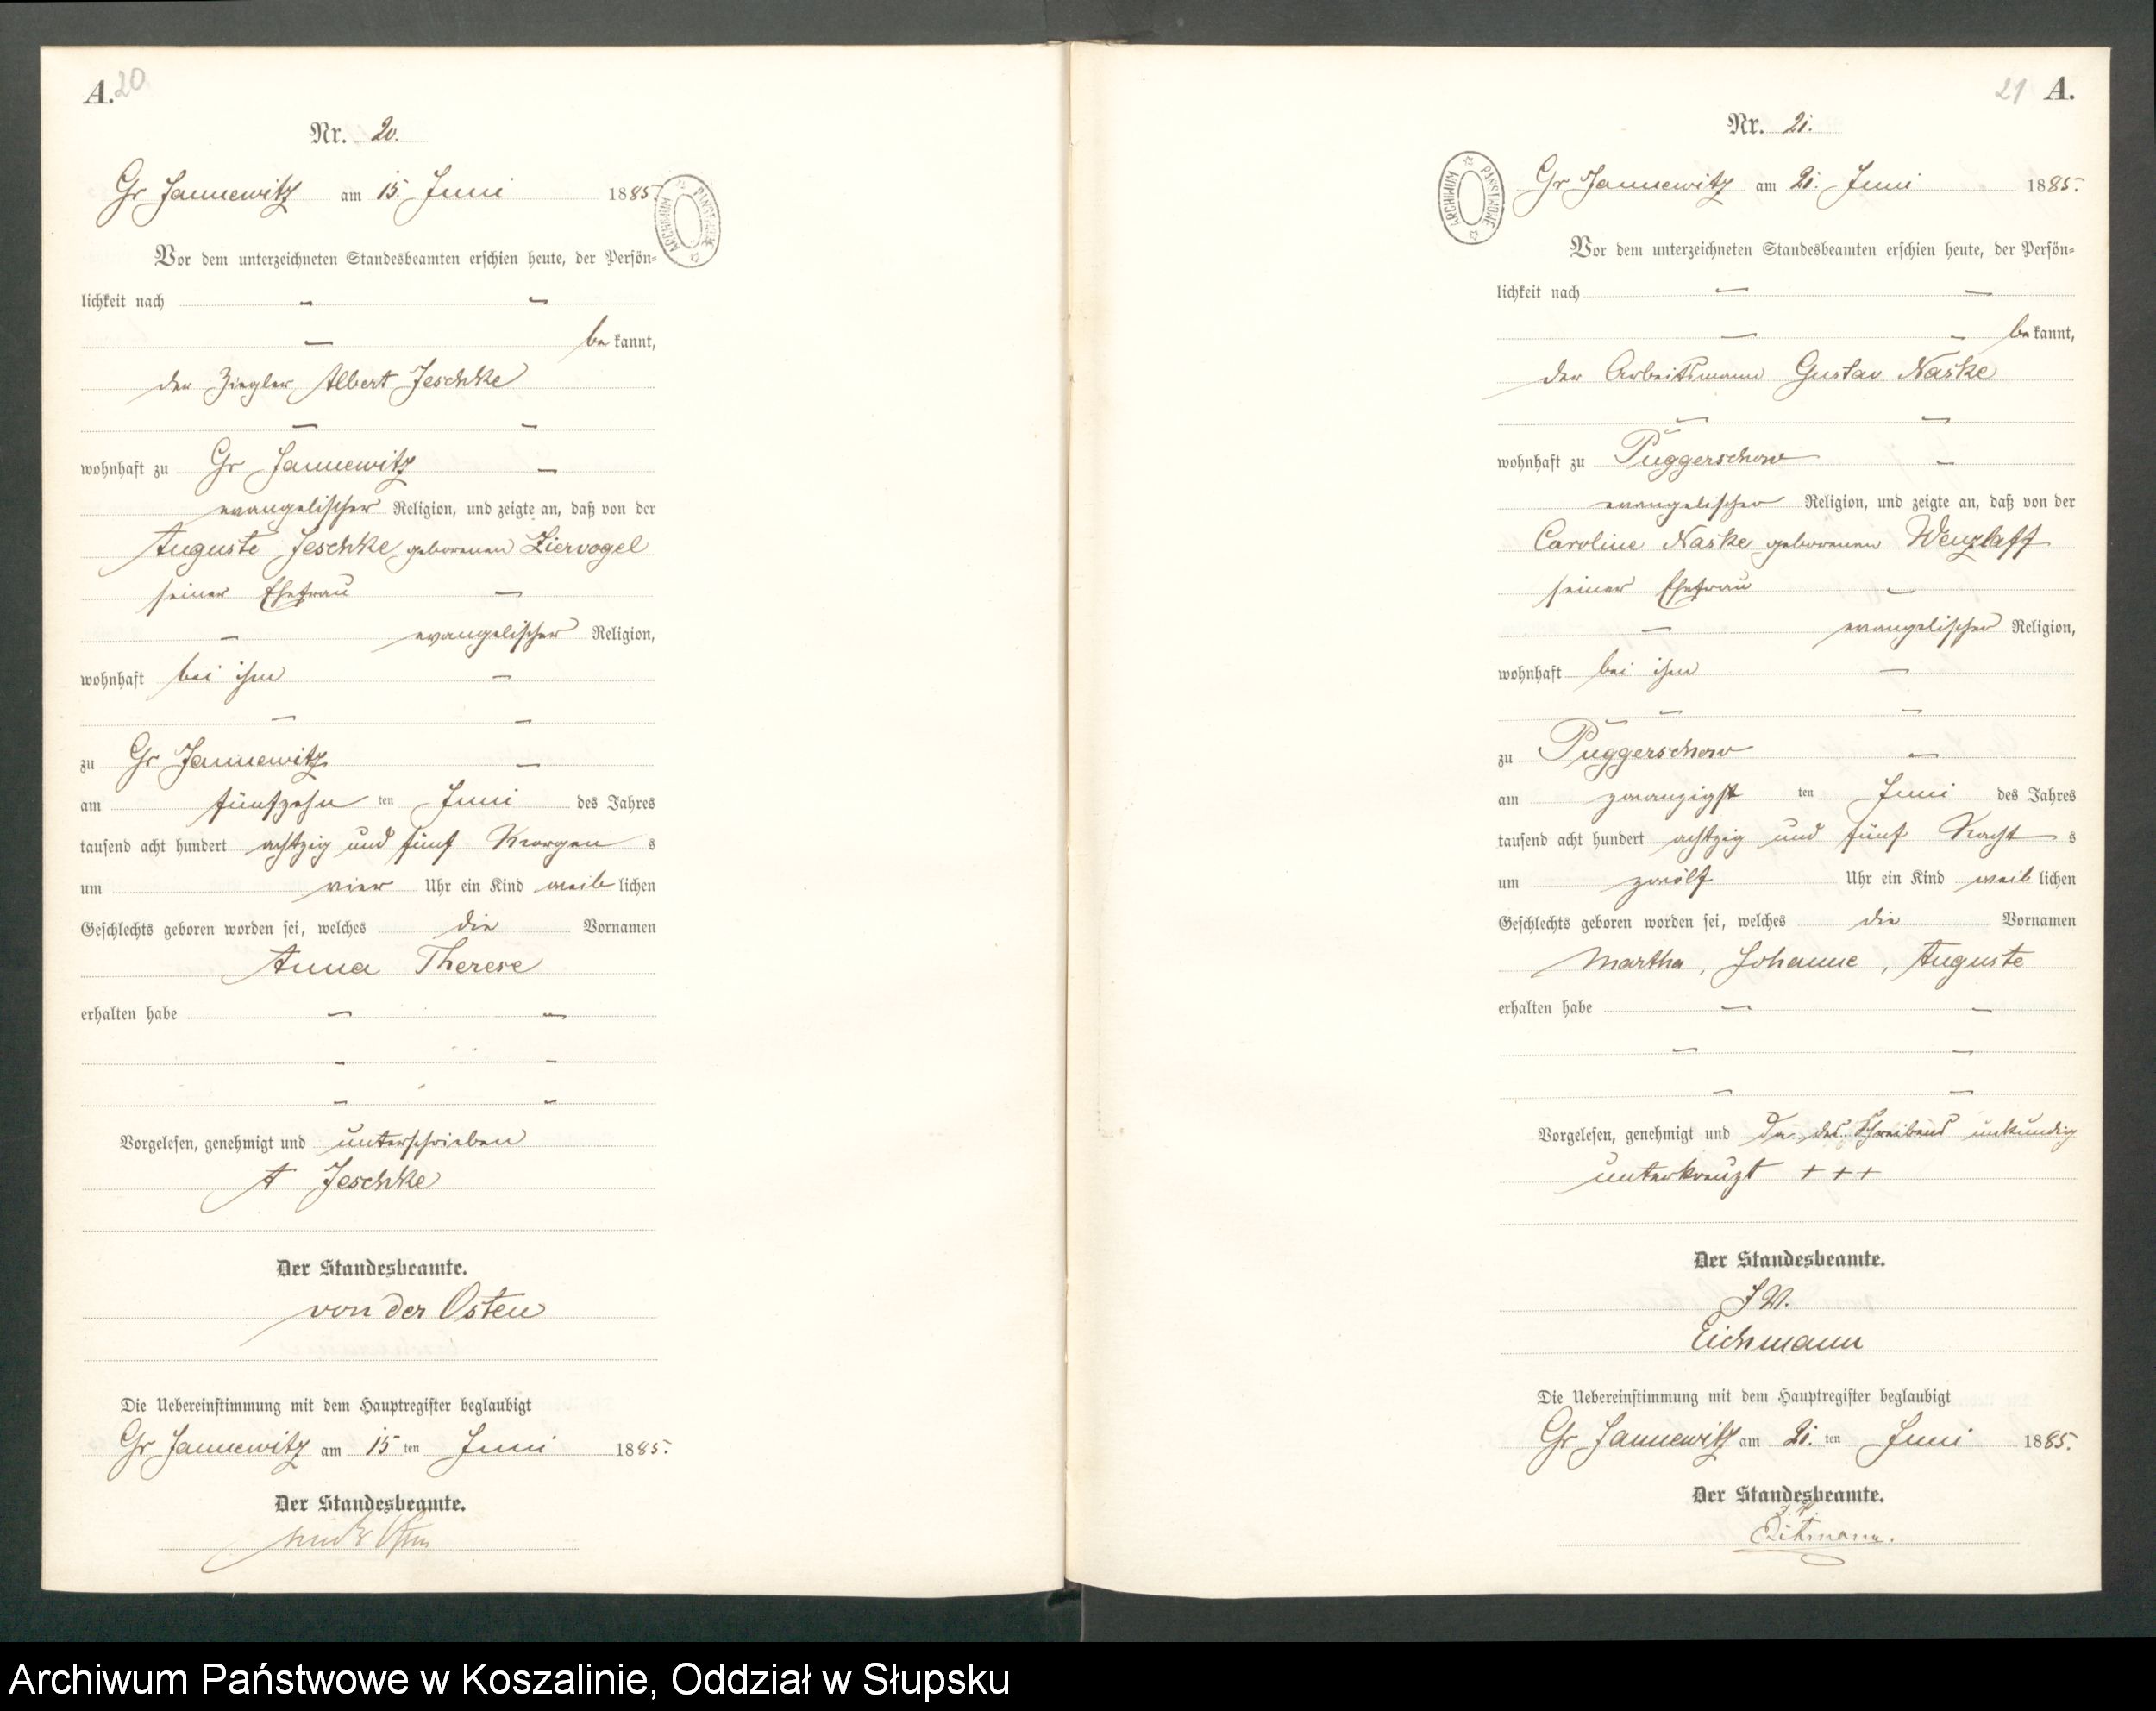 A. 20
Nr. 20.
Gr Jannewitz am 15. Juni 1885.
ARCHIWUM PAŃSTWOWE
Vor dem unterzeichneten Standesbeamten erschien heute, der Persön-
lichkeit nach - -
- bekannt,
der Ziegler Albert Jeschke
- -
wohnhaft zu Gr Jannewitz -
evangelischer Religion, und zeigte an, daß von der
Auguste Jeschke geborenen Ziervogel
seiner Ehefrau -
- evangelischer Religion,
wohnhaft bei ihm -
- -
zu Gr Jannewitz -
am fünfzehn ten Juni des Jahres
tausend acht hundert achtzig und fünf Morgen s
um vier Uhr ein Kind weiblichen
Geschlechts geboren worden sei, welches die Vornamen
Anna Therese
erhalten habe - -
- -
- -
Vorgelesen, genehmigt und unterschrieben
A Jeschke
Der Standesbeamte.
von der Osten
Die Uebereinstimmung mit dem Hauptregister beglaubigt
Gr Jannewitz am 15 ten Juni 1885.
Der Standesbeamte.
von der Osten
21 A.
Nr. 21.
Gr Jannewitz am 21. Juni 1885.
ARCHIWUM PAŃSTWOWE
Vor dem unterzeichneten Standesbeamten erschien heute, der Persön-
lichkeit nach - -
- - bekannt,
der Arbeitsmann Gustav Naske
- -
wohnhaft zu Puggerschow -
evangelischer Religion, und zeigte an, daß von der
Caroline Naske geborenen Wenzlaff
seiner Ehefrau -
- evangelischer Religion,
wohnhaft bei ihm -
- -
zu Puggerschow -
am zwanzigst ten Juni des Jahres
tausend acht hundert achtzig und fünf Nacht s
um zwölf Uhr ein Kind weiblichen
Geschlechts geboren worden sei, welches die Vornamen
Martha, Johanne, Auguste
erhalten habe - -
- -
- -
Vorgelesen, genehmigt und da des Schreibens unkundig
unterkreuzt + + +
Der Standesbeamte.
I. V.
Eichmann
Die Uebereinstimmung mit dem Hauptregister beglaubigt
Gr Jannewitz am 21. ten Juni 1885.
Der Standesbeamte.
I. V.
Eichmann.
Archiwum Państwowe w Koszalinie, Oddział w Słupsku